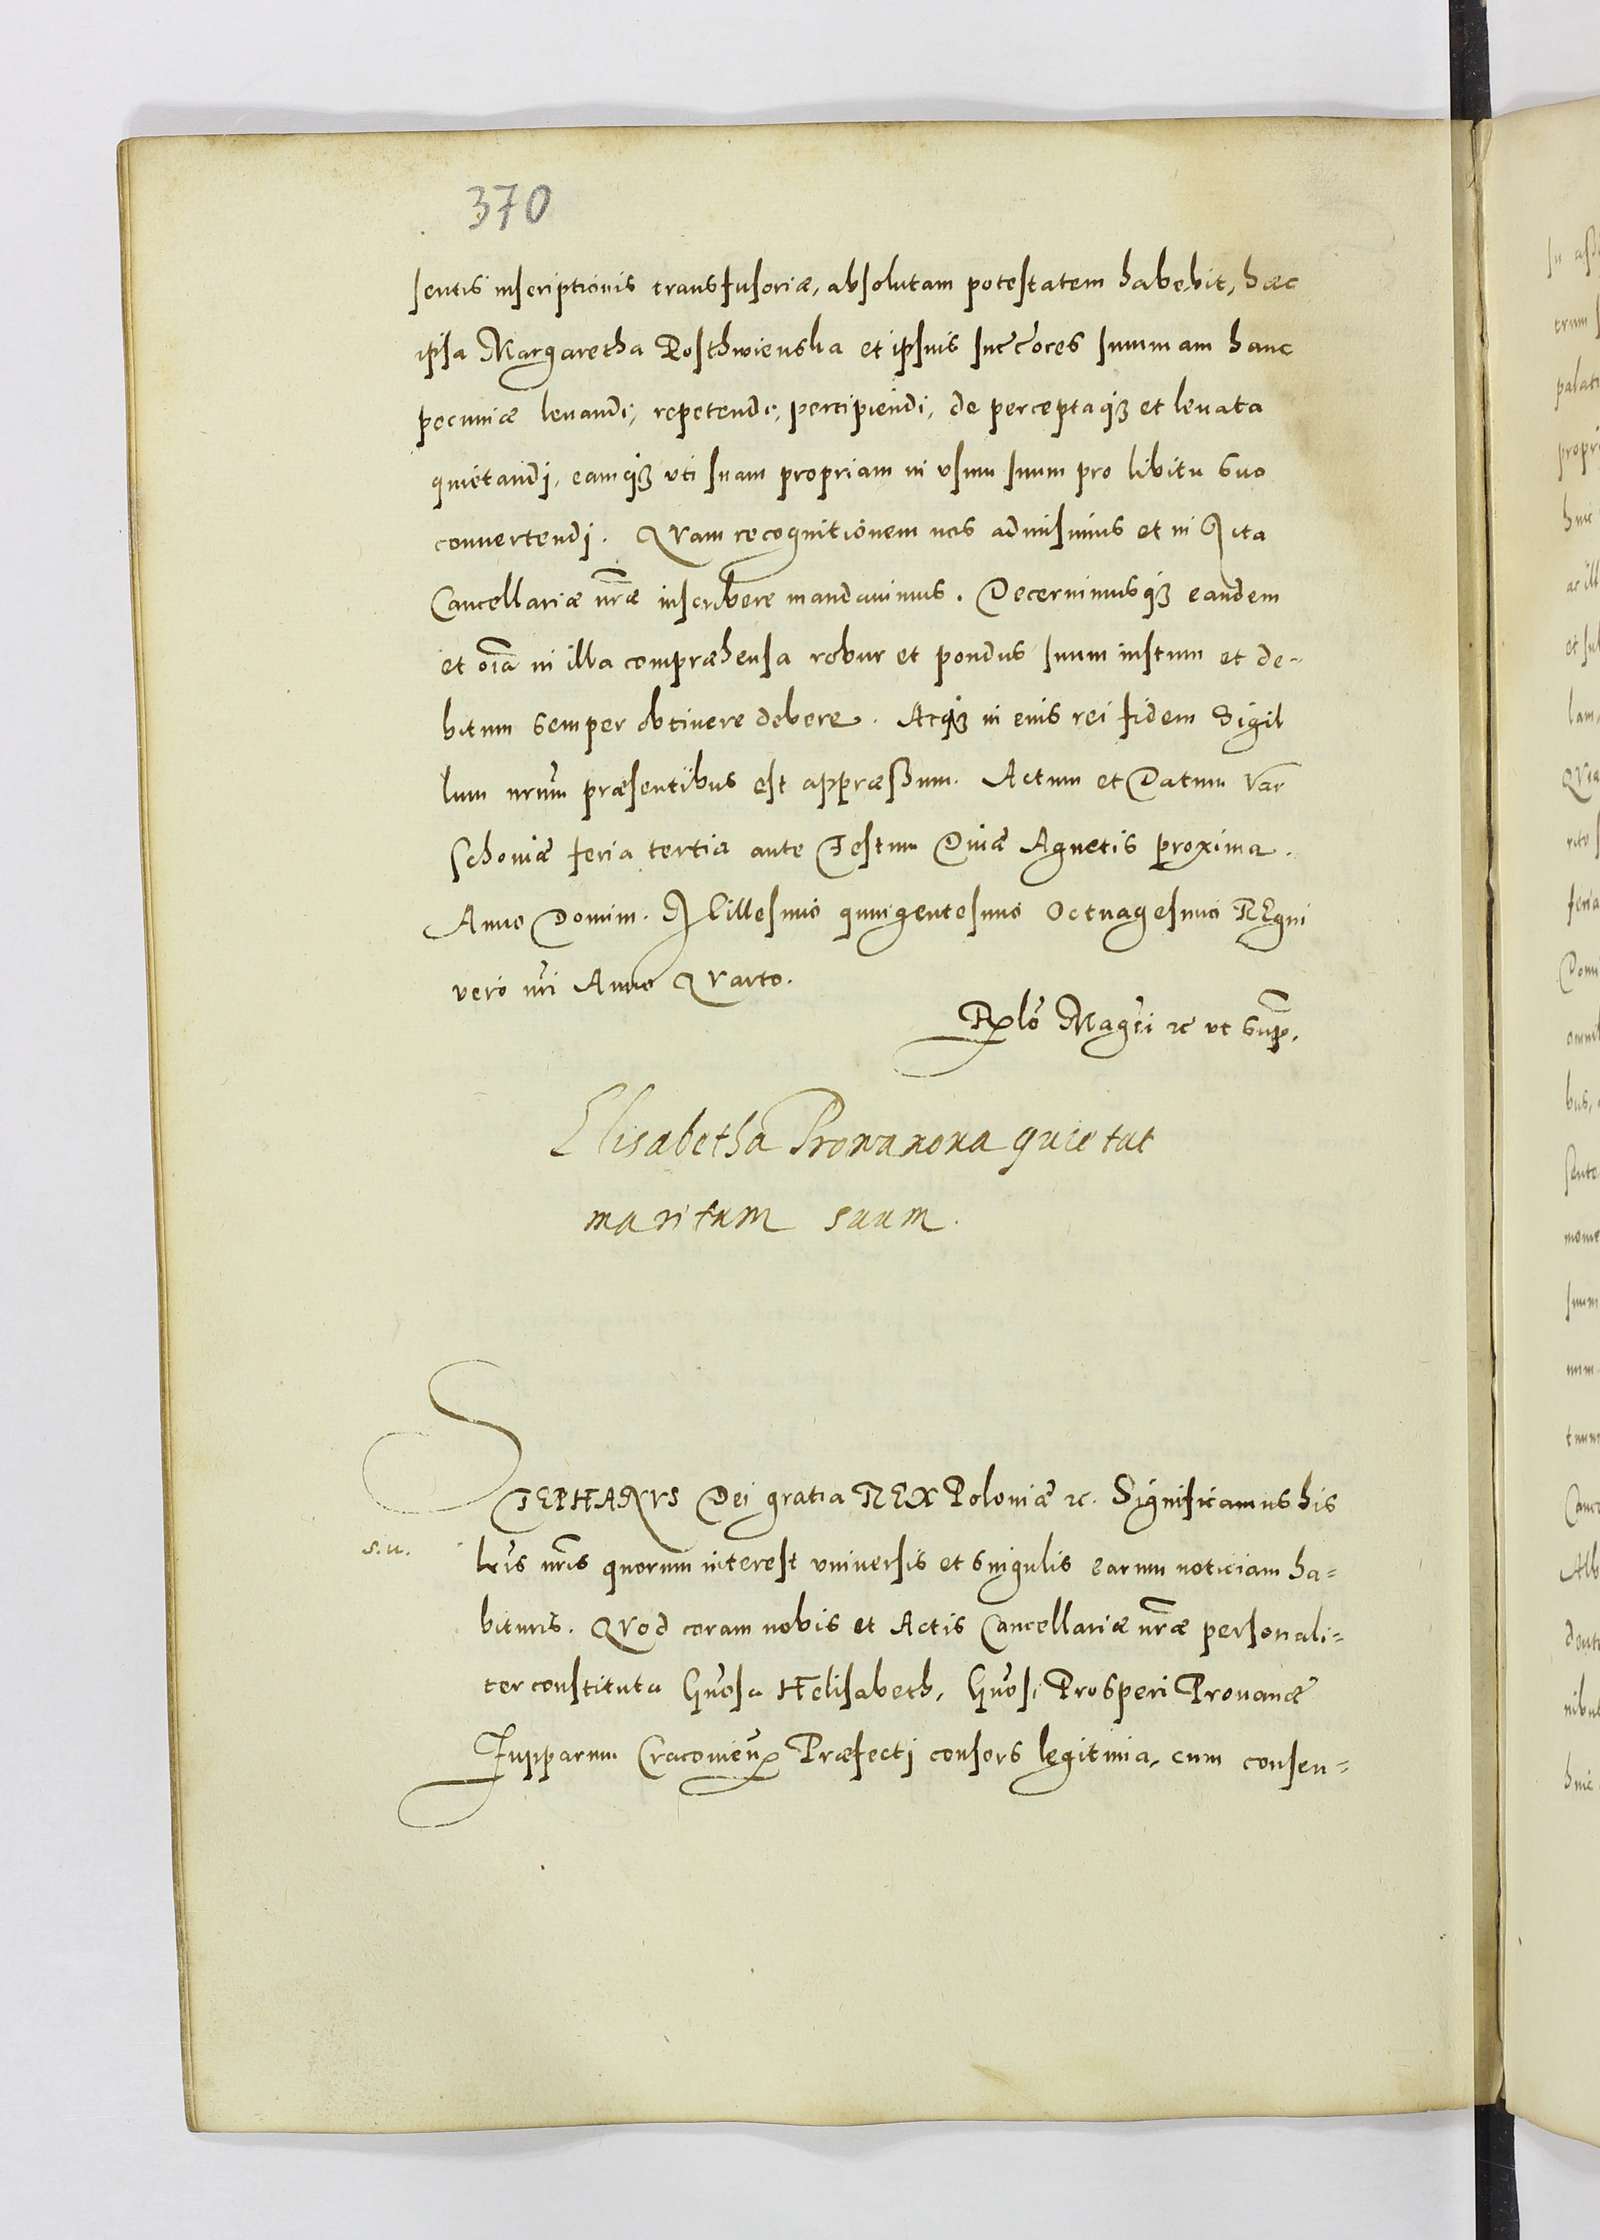 370
sentis inscriptionis transfusoriæ, absolutam potestatem habebit, hæc
ipsa Margaretha Rosthwienska et ipsius succores summam hanc
pecuniæ leuandi, repetendi, percipiendi, de perceptaq3 et leuata
quietandi, eamq3 uti suam propriam in vsum suum pro libitu suo
conuertendi. QVam recognitionem nos admisimus et in Acta
Cancellariæ nr̃æ inscribere mandauimus. Decernimusq3 eandem
et oĩa in illa compræhensa robur et pondus suum iustum et de-
bitum semper obtinere debere. Atq3 in eius rei fidem Sigil
lum nrũm præsentibus est appræssum. Actum et Datum Var
schouiæ feria tertia ante Festum Diuæ Agnetis proxima.
Anno Domini. Millesimo quingentesimo Octuagesimo REgni
vero nr̃i Anno QVarto.
Rlõ Magci ꝛc ut Sup.
Elisabetha Prowanowa quietat
maritum suum.
STEPHANVS Dei gratia REX Poloniæ ꝛc. Significamus his
s.u.
lr̃is nr̃is quorum interest vniuersis et singulis earum noticiam ha-
bituris. QVod coram nobis et Actis Cancellariæ nr̃æ personali-
ter constituta Gñosa Helisabeth, Gñosi Prosperi Prouanæ
Jupparum Cracouien̄ Præfecti consors legitima, cum consen-